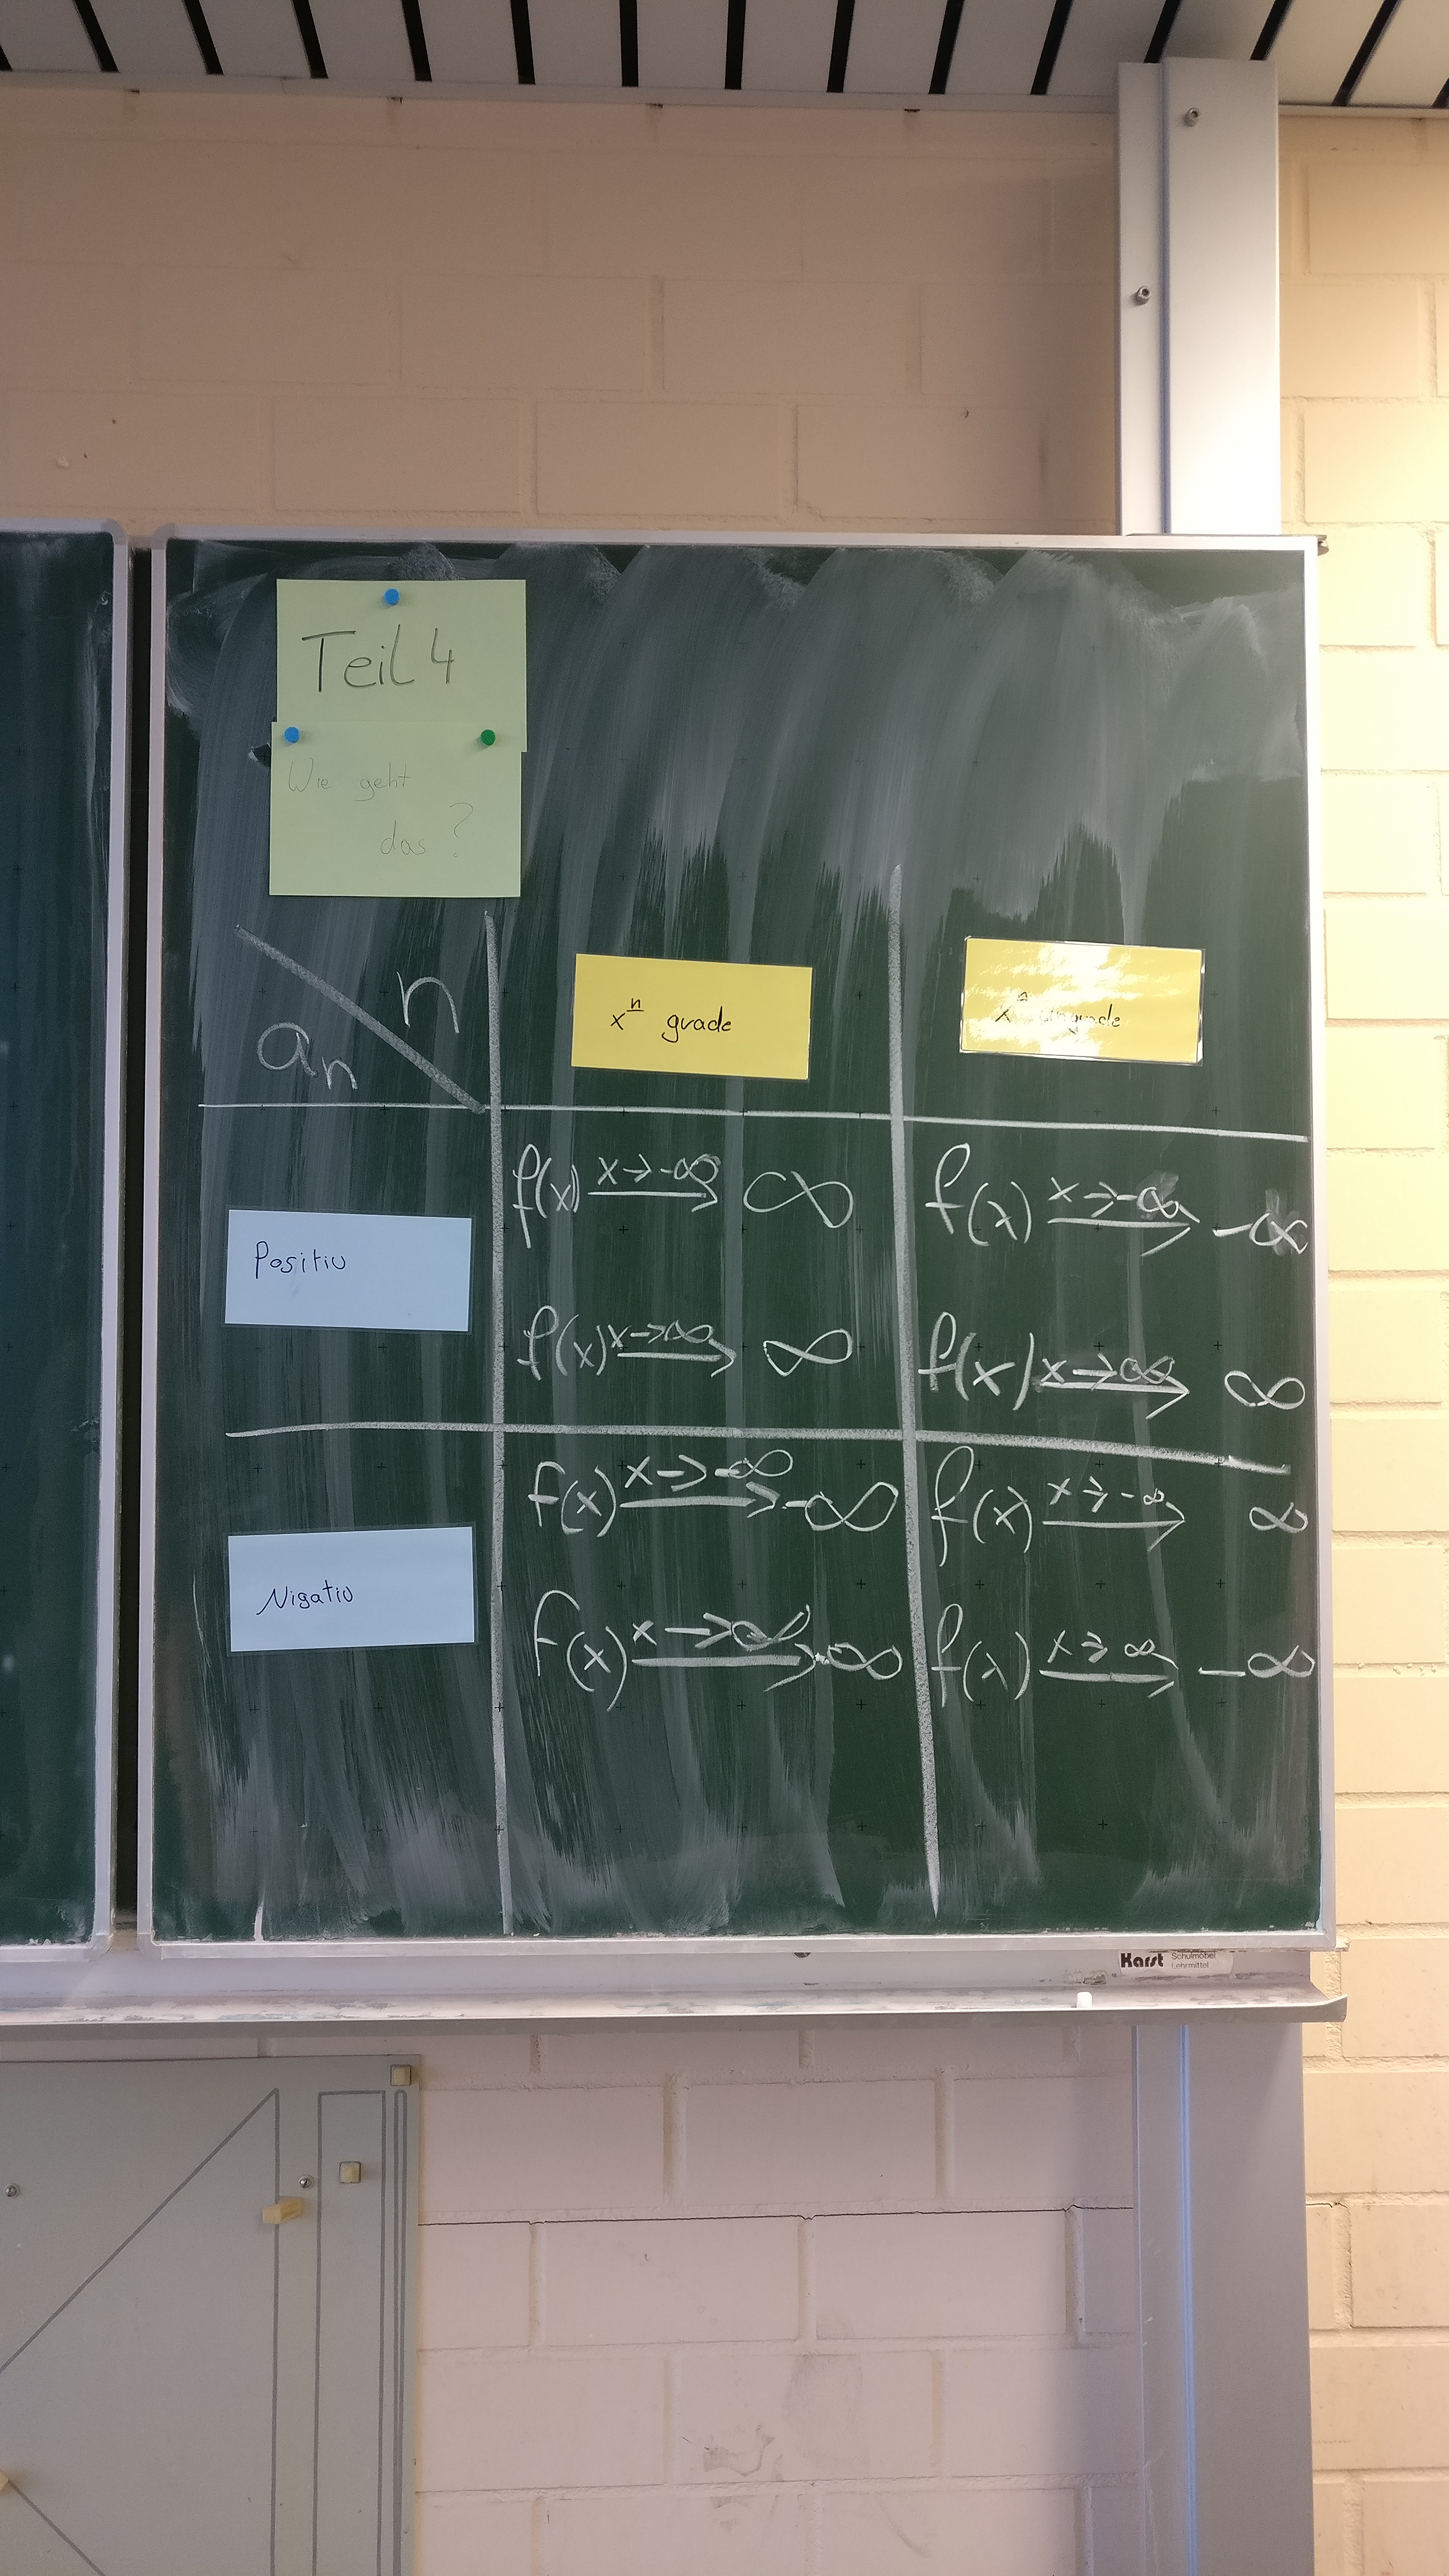 Teil 4
Wie geht
das ?
n
an
xⁿ grade
xⁿ ungrade
Positiv
f(x) x→-∞ ∞
f(x) x→-∞ -∞
f(x) x→∞ ∞
f(x) x→∞ ∞
Nigativ
f(x) x→-∞ -∞
f(x) x→-∞ ∞
f(x) x→∞ -∞
f(x) x→∞ -∞
Karst Schulmöbel
Lehrmittel